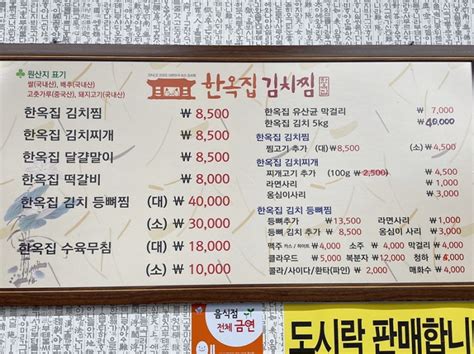 원산지 표기
쌀(국내산), 배추(국내산)
고춧가루(중국산), 돼지고기(국내산)
한옥집 김치찜
한옥집 김치찜 ₩ 8,500
한옥집 김치찌개 ₩ 8,500
한옥집 달걀말이 ₩ 8,500
한옥집 떡갈비 ₩ 8,500
한옥집 김치 등뼈찜 (대) ₩ 40,000
(소) ₩ 30,000
한옥집 수육무침 (대) ₩ 18,000
(소) ₩ 10,000
한옥집 유산균 막걸리 ₩ 7,000
한옥집 김치 5kg ₩ 40,000
한옥집 김치찜
찜고기 추가 (대) ₩8,500 (소) ₩ 4,500
한옥집 김치찌개
찌개고기 추가 (100g ₩ 2,500) ₩ 4,500
라면사리 ₩ 1,000
옹심이사리 ₩ 3,000
한옥집 김치 등뼈찜
등뼈추가 ₩13,500 라면사리 ₩ 1,000
우거지추가 ₩ 8,500 옹심이사리 ₩ 3,000
맥주 카스 / 하이트 ₩4,000 소주 ₩ 4,000 막걸리 ₩ 4,000
클라우드 ₩ 5,000 복분자 ₩ 12,000 청하 ₩ 6,000
콜라/사이다/환타(파인) ₩ 2,000 매화수 ₩ 4,000
음식점
전체 금연
도시락 판매합니다